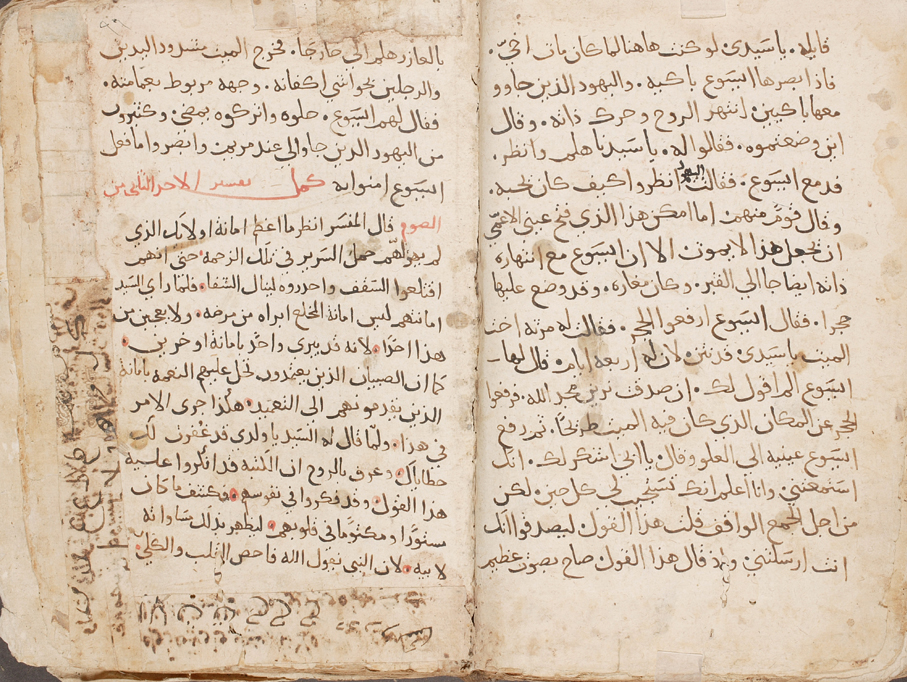 قايله. يا سيدى لو كنت هاهنا لما كان مات اخىّ.
فاذا ابصرها اليسوع باكيه. واليهود الذين جاوو
معها باكين. انتهر الروح وحرك ذاته. وقال
اين وضعتموه. فقالوا له. يا سيدنا هلم وانظر.
فدمع اليسوع. فقالت اليهود انظروا كيف كان يحبه.
وقال قوم منهم. اما امكن هذا الذي فتح عيني الاعمى
ان يجعل هذا لا يموت. الا ان اليسوع مع انتهاره
ذاته ايضا جا الي القبر. وكان مغاره. وقد وضع عليها
حجرا. فقال اليسوع ارفعوا الحجر. فقالت له مرتا اخت
الميت يا سيدى قد نتن. لان له اربعة ايام. قال لها
اليسوع الم اقول لك. ان صدقت ترين مجد الله. فرفعوا
الحجر عن المكان الذي كان فيه الميت طريحًا. ثم رفع
اليسوع عينيه الي العلو وقال يا ابي اشكر لك. انك
استمعتني وانا اعلم انك تستجيب لي كل حين. لكن
من اجل الجمع الواقف قلت هذا القول. ليصدقوا انك
انت ارسلتني. واذ قال هذا القول صاح بصوت عظيم
يا لعازر هلم الى خارجًا. فخرج الميت مشدود اليدين
والرجلين نحو اثني اكفانه. ووجهه مربوط بعمامته.
فقال لهم اليسوع. حلوه واتركوه يمضى. وكثيرون
من اليهود الذين جاوا الي عند مريم. وابصروا ما فعل
اليسوع امنوا به كمل تفسير الاحد الثاني من
الصوم قال المفسر انظر ما اعظم امانة اولايك الذي
لم يهولهم حمل السرير في تلك الزحمه حتى انهم
اقتلعوا السقف واحدروه لينال الشفا. فلما راي السيد
امانتهم ليس امانة المخلع ابراه من مرضه. ولا يعجبن من
هذا احدًا. لانه قد يبرى واحد بامانة اخرين.
كما ان الصبيان الذين يعتمدون. تحل عليهم النعمه بامانة
الذين يقدمونهم الى التعميد. هكذا جرى الامر
في هذا. ولما قال له السيد يا ولدى قد غفرت لك
خطاياك. وعرف بالروح ان الكتبة قد انكروا عليه
هذا القول. وقد فكروا في نفوسهم. فكشف ما كان
مستورًا ومكتومًا في قلوبهم. ليظهر بذلك مساواته
لابيه. لان النبي يقول الله فاحص القلب والكلى